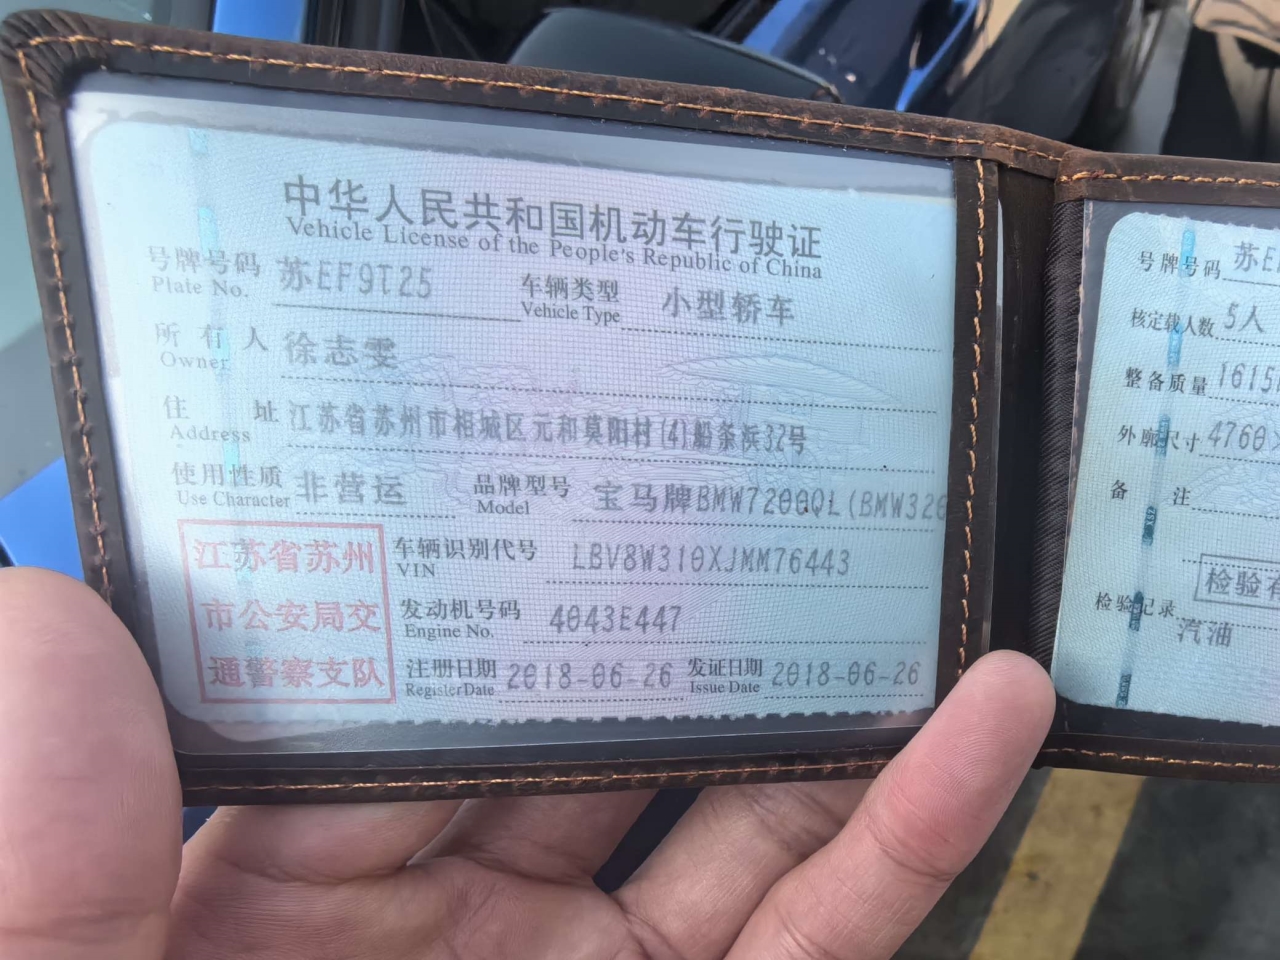 中华人民共和国机动车行驶证
Vehicle License of the People's Republic of China
号牌号码 苏EF9T25 车辆类型 小型轿车
Plate No. Vehicle Type
所有人 徐志雯
Owner
住址 江苏省苏州市相城区元和莫阳村(4)船条浜32号
Address
使用性质 非营运 品牌型号 宝马牌BMW7200QL(BMW320
Use Character Model
江苏省苏州
市公安局交
通警察支队
车辆识别代号 LBV8W310XJMM76443
VIN
发动机号码 4043E447
Engine No.
注册日期 2018-06-26 发证日期 2018-06-26
Register Date Issue Date
号牌号码 苏E
核定载人数 5人
整备质量 1615
外廓尺寸 4760
备注
检验
检验记录
汽油